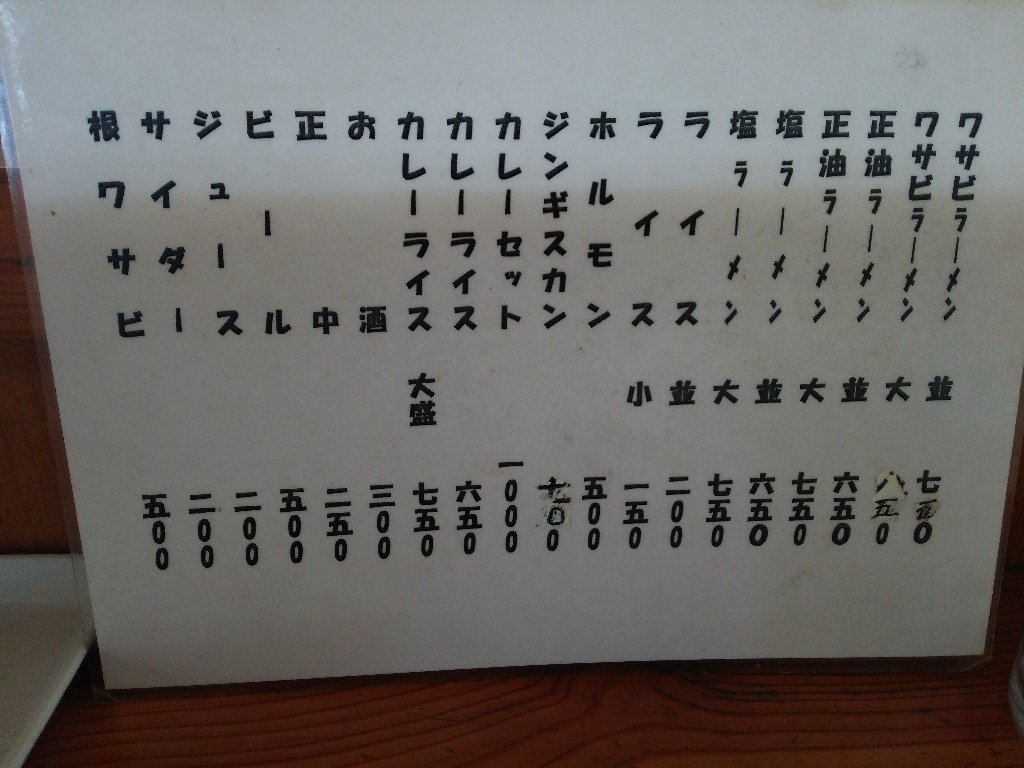 ワサビラーメン 並 七五0
ワサビラーメン 大 八五0
正油ラーメン 並 六五0
正油ラーメン 大 七五0
塩ラーメン 並 六五0
塩ラーメン 大 七五0
ライス 並 二00
ライス 小 一五0
ホルモン 五00
ジンギスカン 七00
カレーセット 一000
カレーライス 六五0
カレーライス 大盛 七五0
お酒 三00
正中 二五0
ビール 五00
ジュース 二00
サイダー 二00
根ワサビ 五00